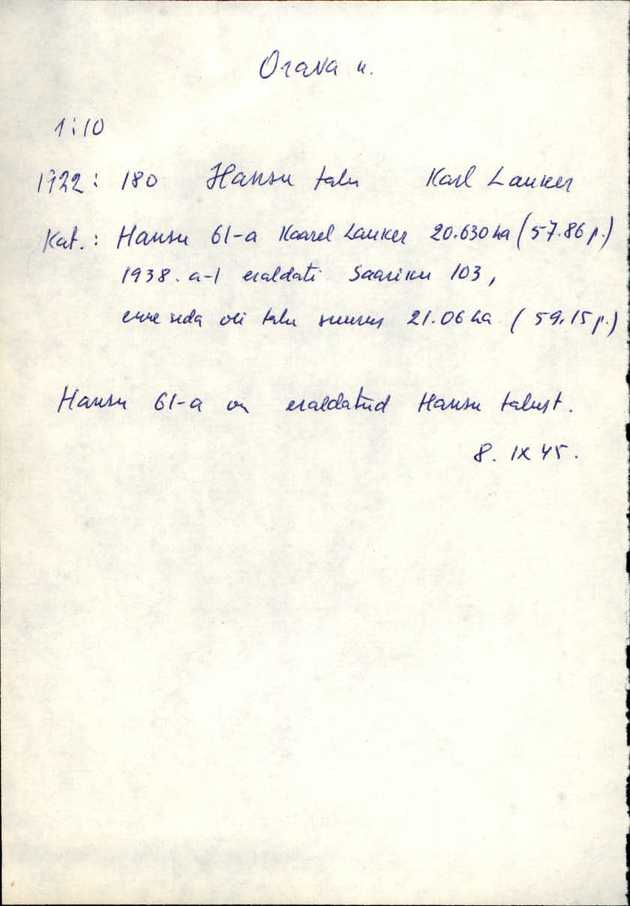 Orava k.
1:10
1922: 180 Hansu talu Karl Lauker
Kat.: Hansu 61-a Kaarel Lauker 20.630 ha (57.86 p.)
1938. a-l eraldati Saariku 103,
enne seda oli talu suurus 21.06 ha (59.15 p.)
Hansu 61-a on eraldatud Hansu talust.
8. IX 45.